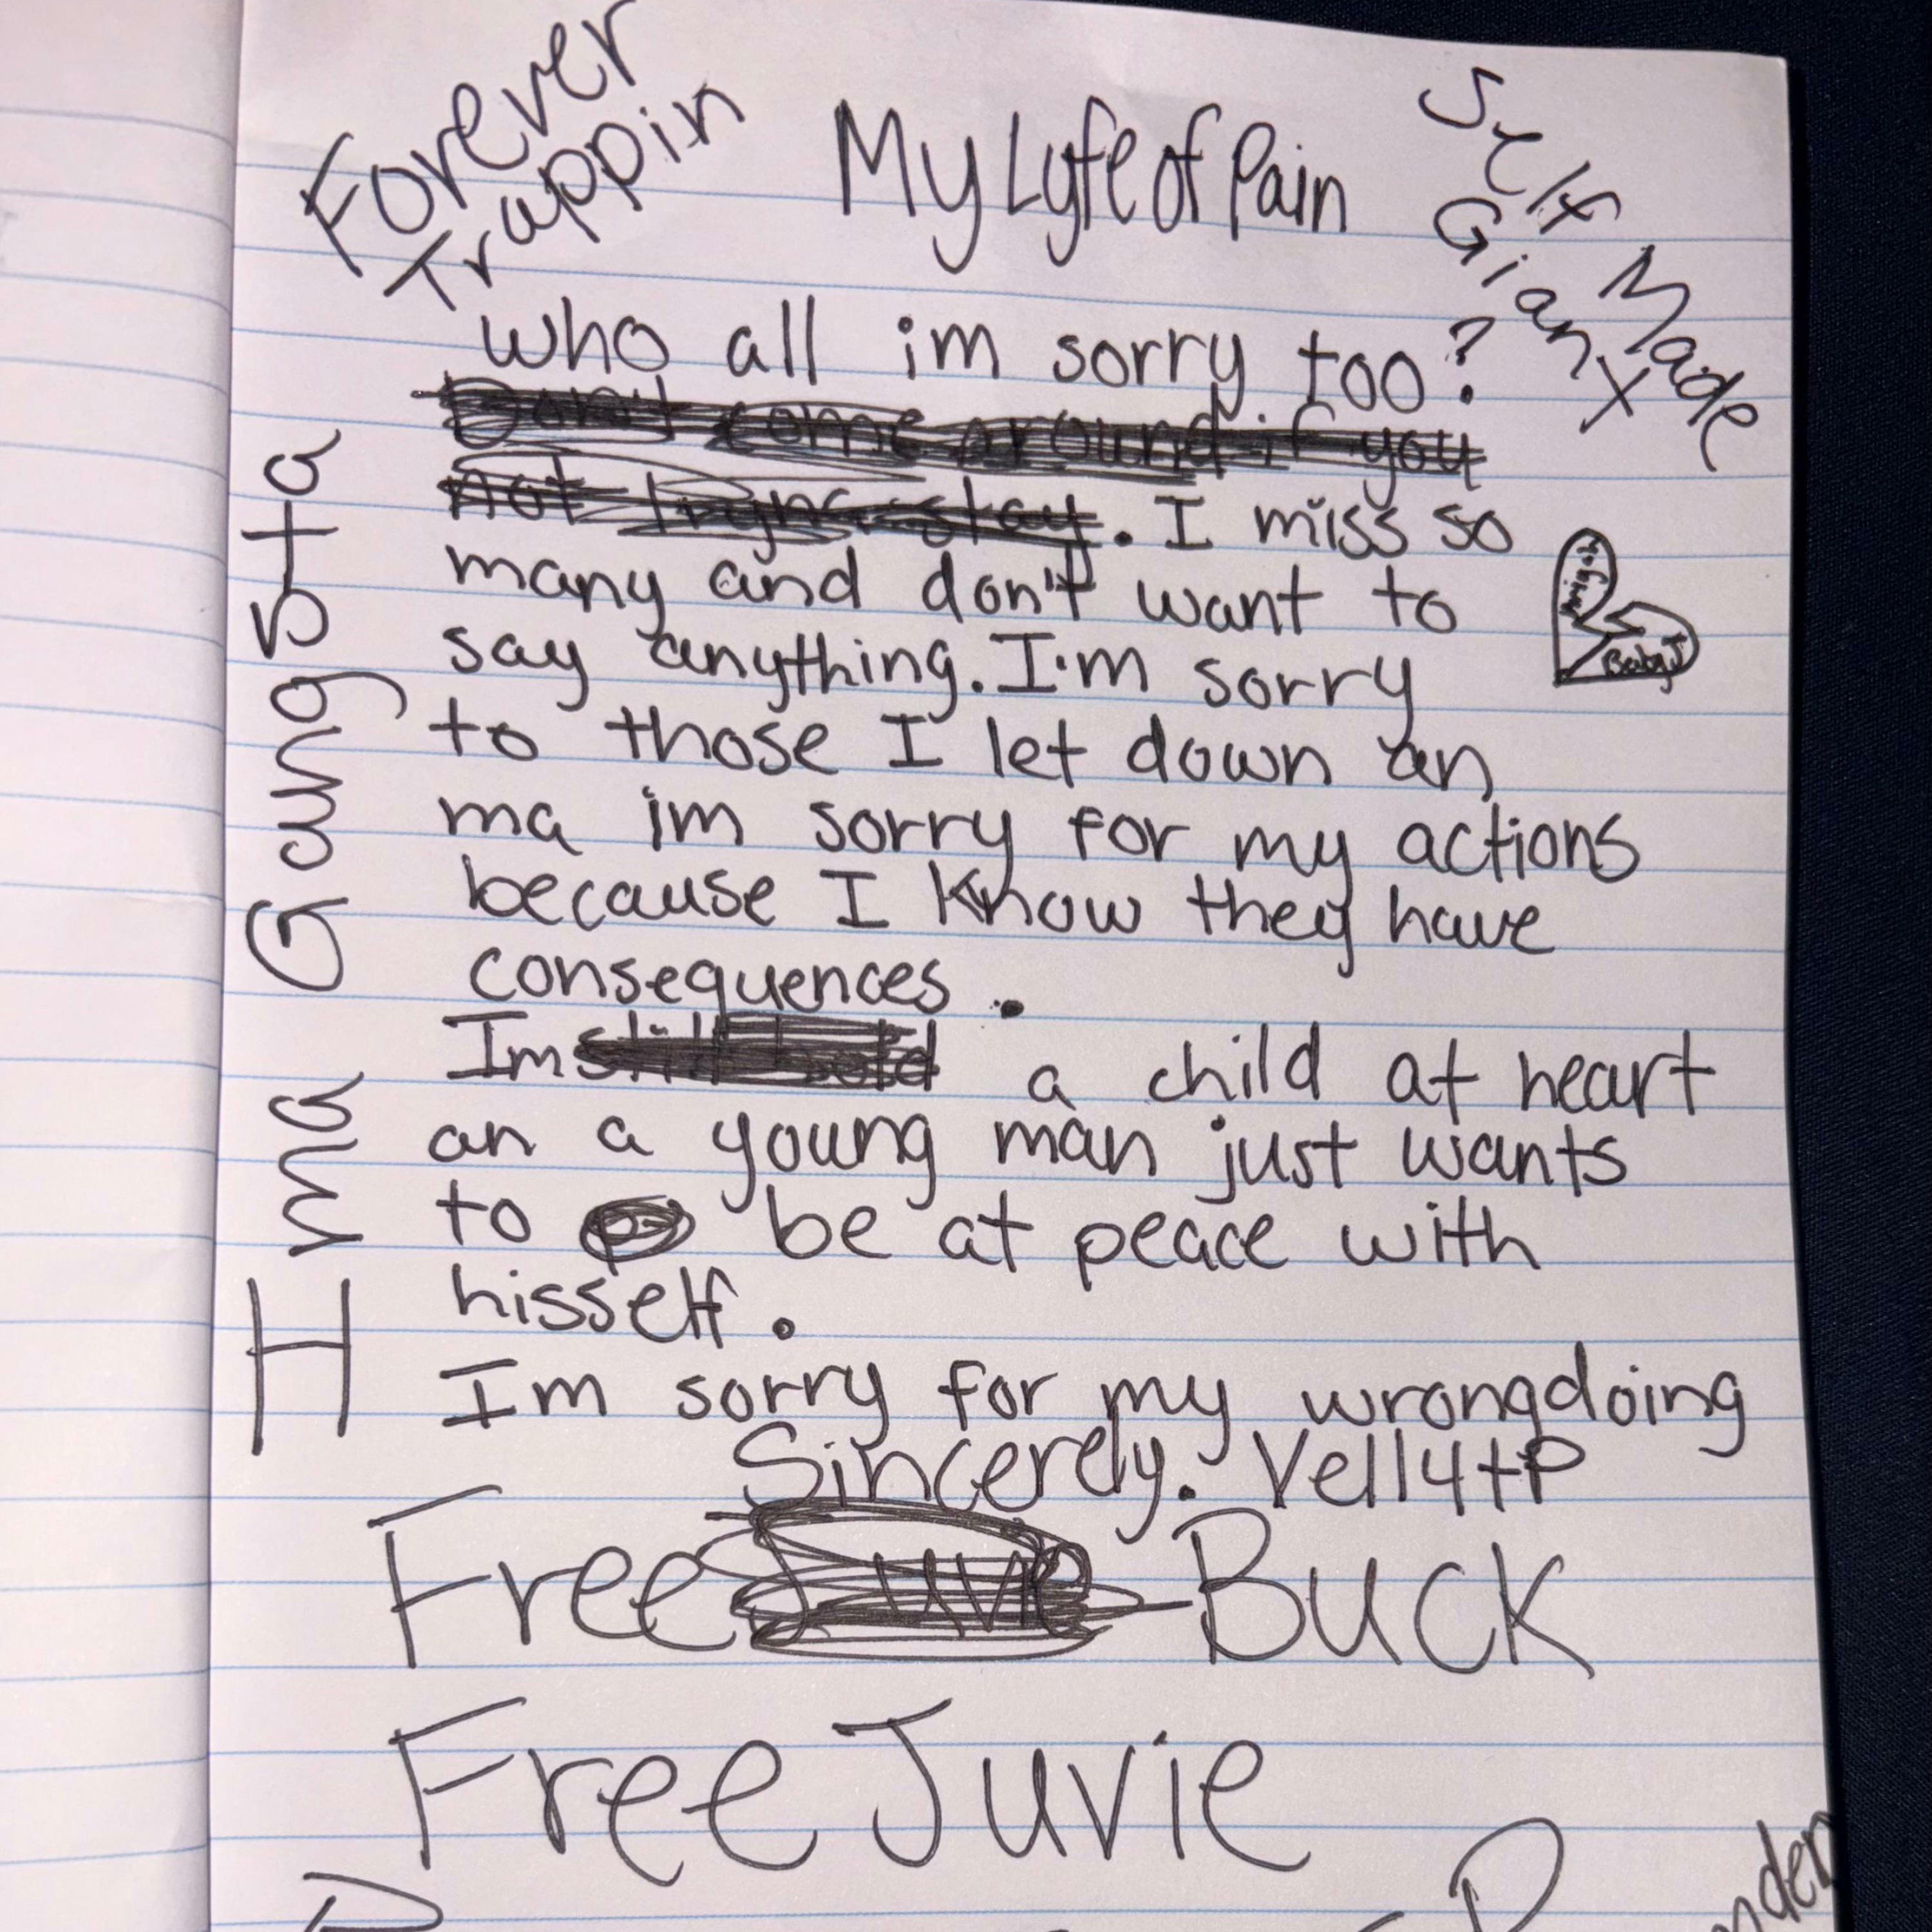 Forever
Trappin
My Lyfe of Pain
Self Made
Giant
who all im sorry too?
Dont come around if you
not tryna stay. I miss so
many and don't want to
say anything. I'm sorry
to those I let down an
ma im sorry for my actions
because I know they have
consequences.
Im a child at heart
an a young man just wants
to be at peace with
hisself.
Im sorry for my wrongdoing
Sincerely. Vell4tP
Free Juvie Buck
Free Juvie
Hma Gang5ta
Baby